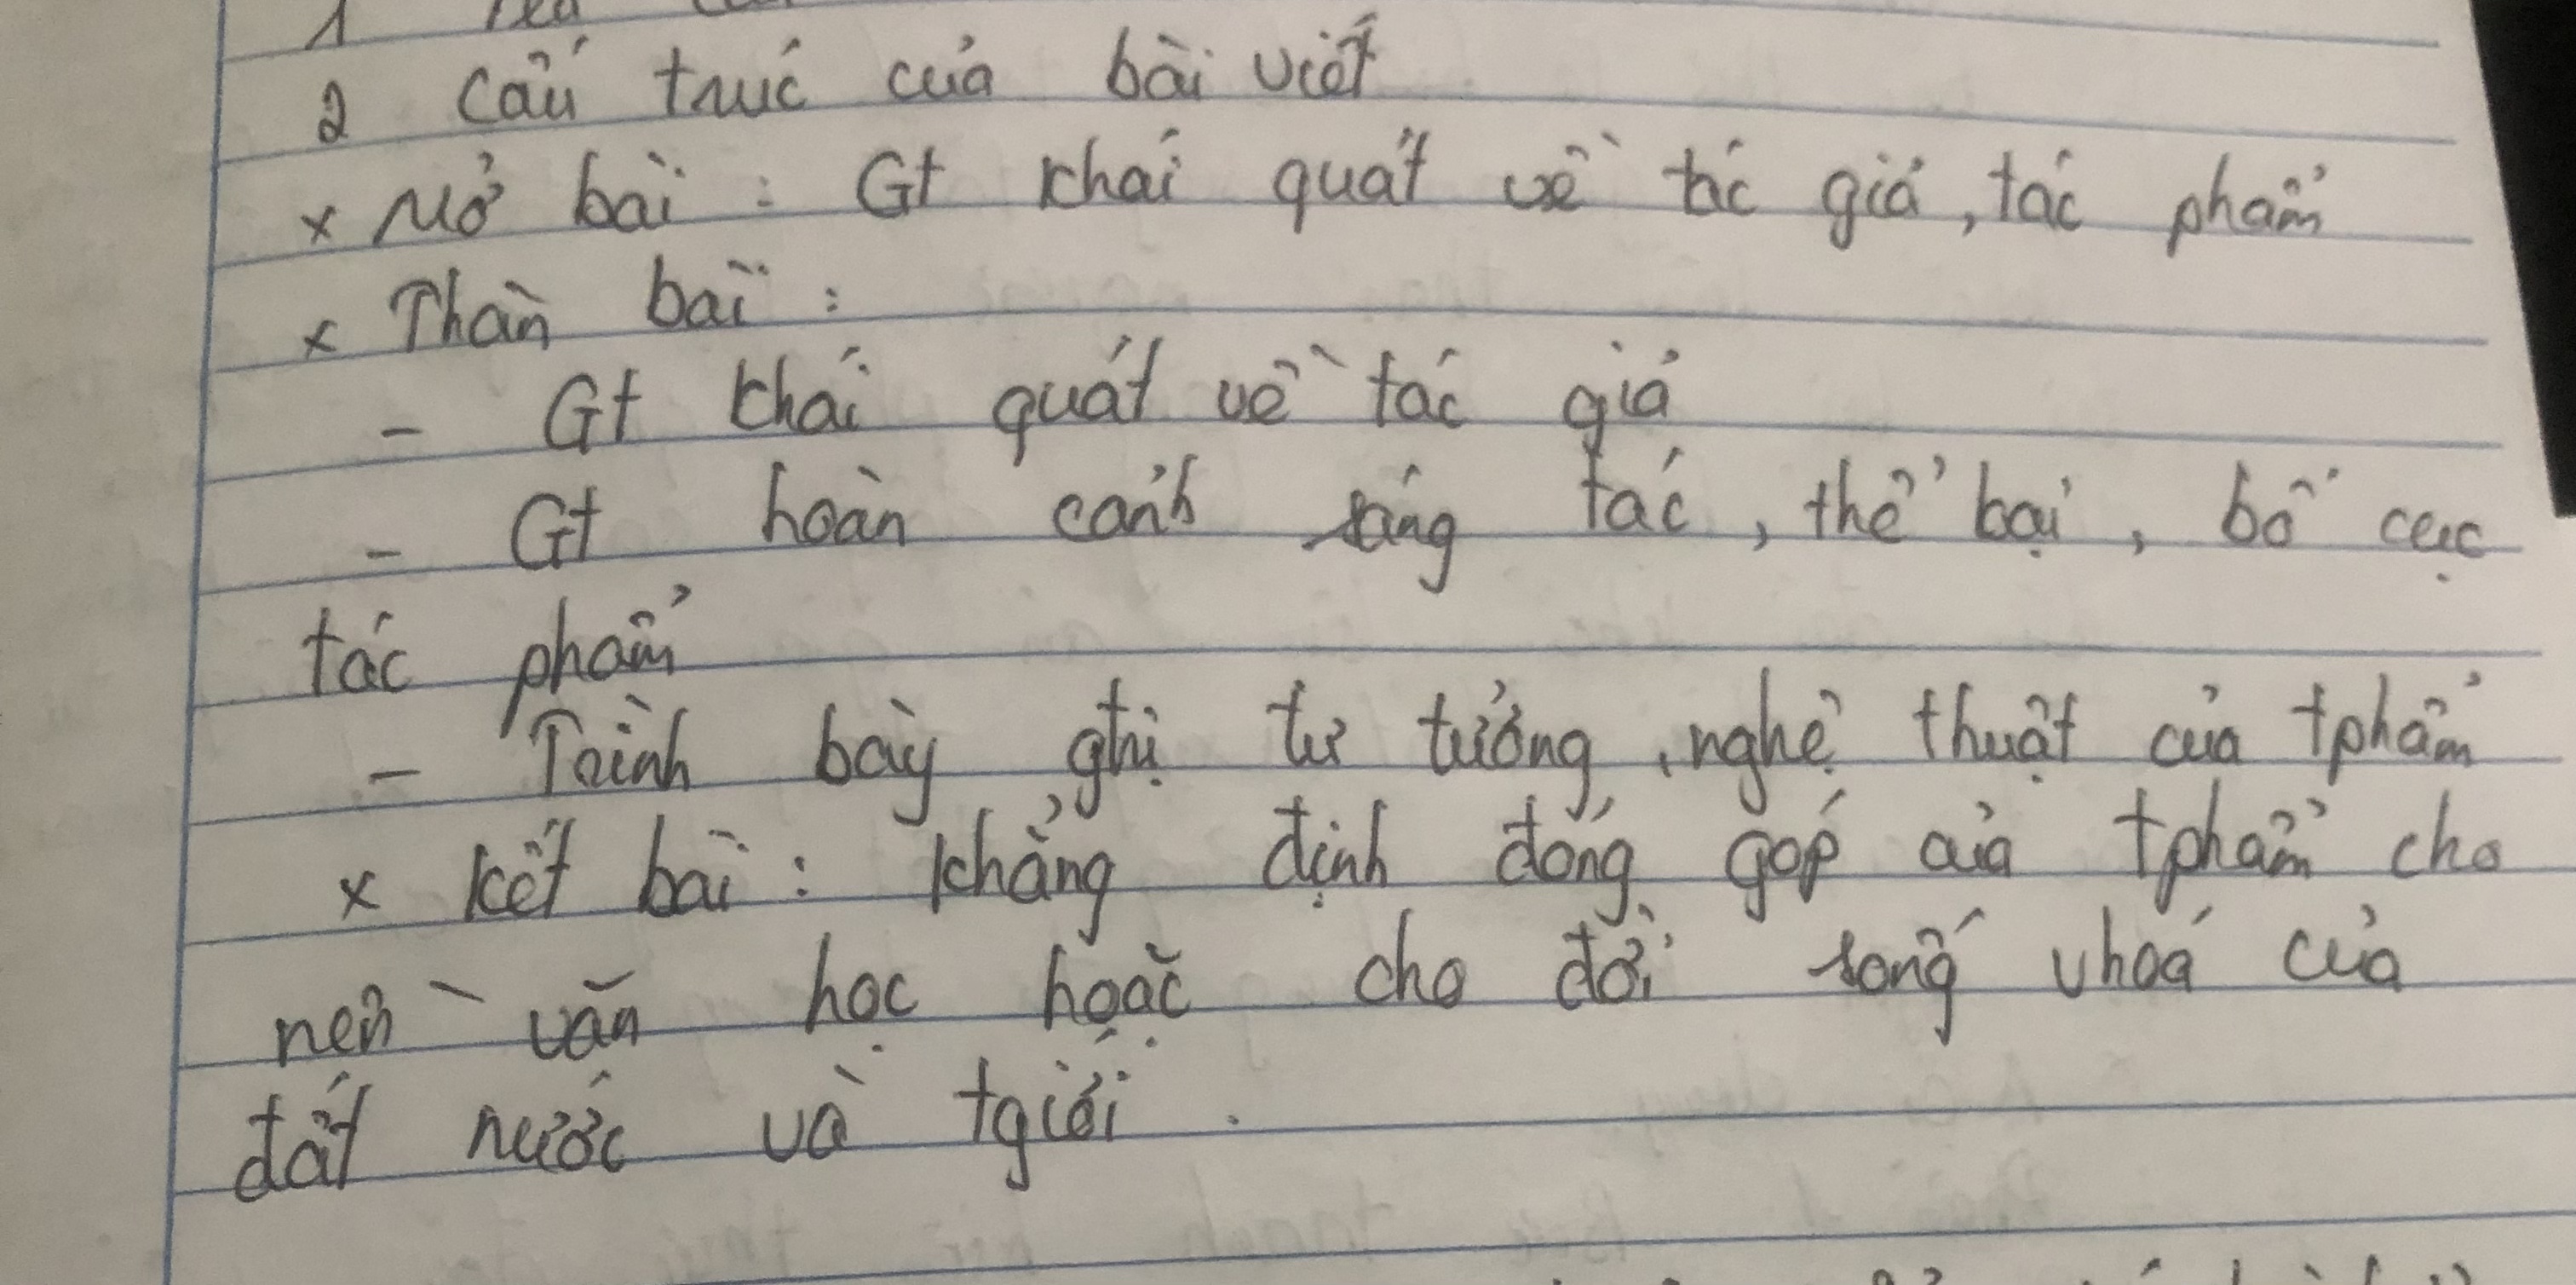 1
2 Cấu trúc của bài viết
x Mở bài : Gt khái quát về tác giả, tác phẩm
x Thân bài :
- Gt khái quát về tác giả
- Gt hoàn cảnh sáng tác, thể loại, bố cục
tác phẩm
- Trình bày gtrị tư tưởng, nghệ thuật của tphẩm
x Kết bài : Khẳng định đóng góp của tphẩm cho
nền văn học hoặc cho đời sống vhoá của
đất nước và tgiới.